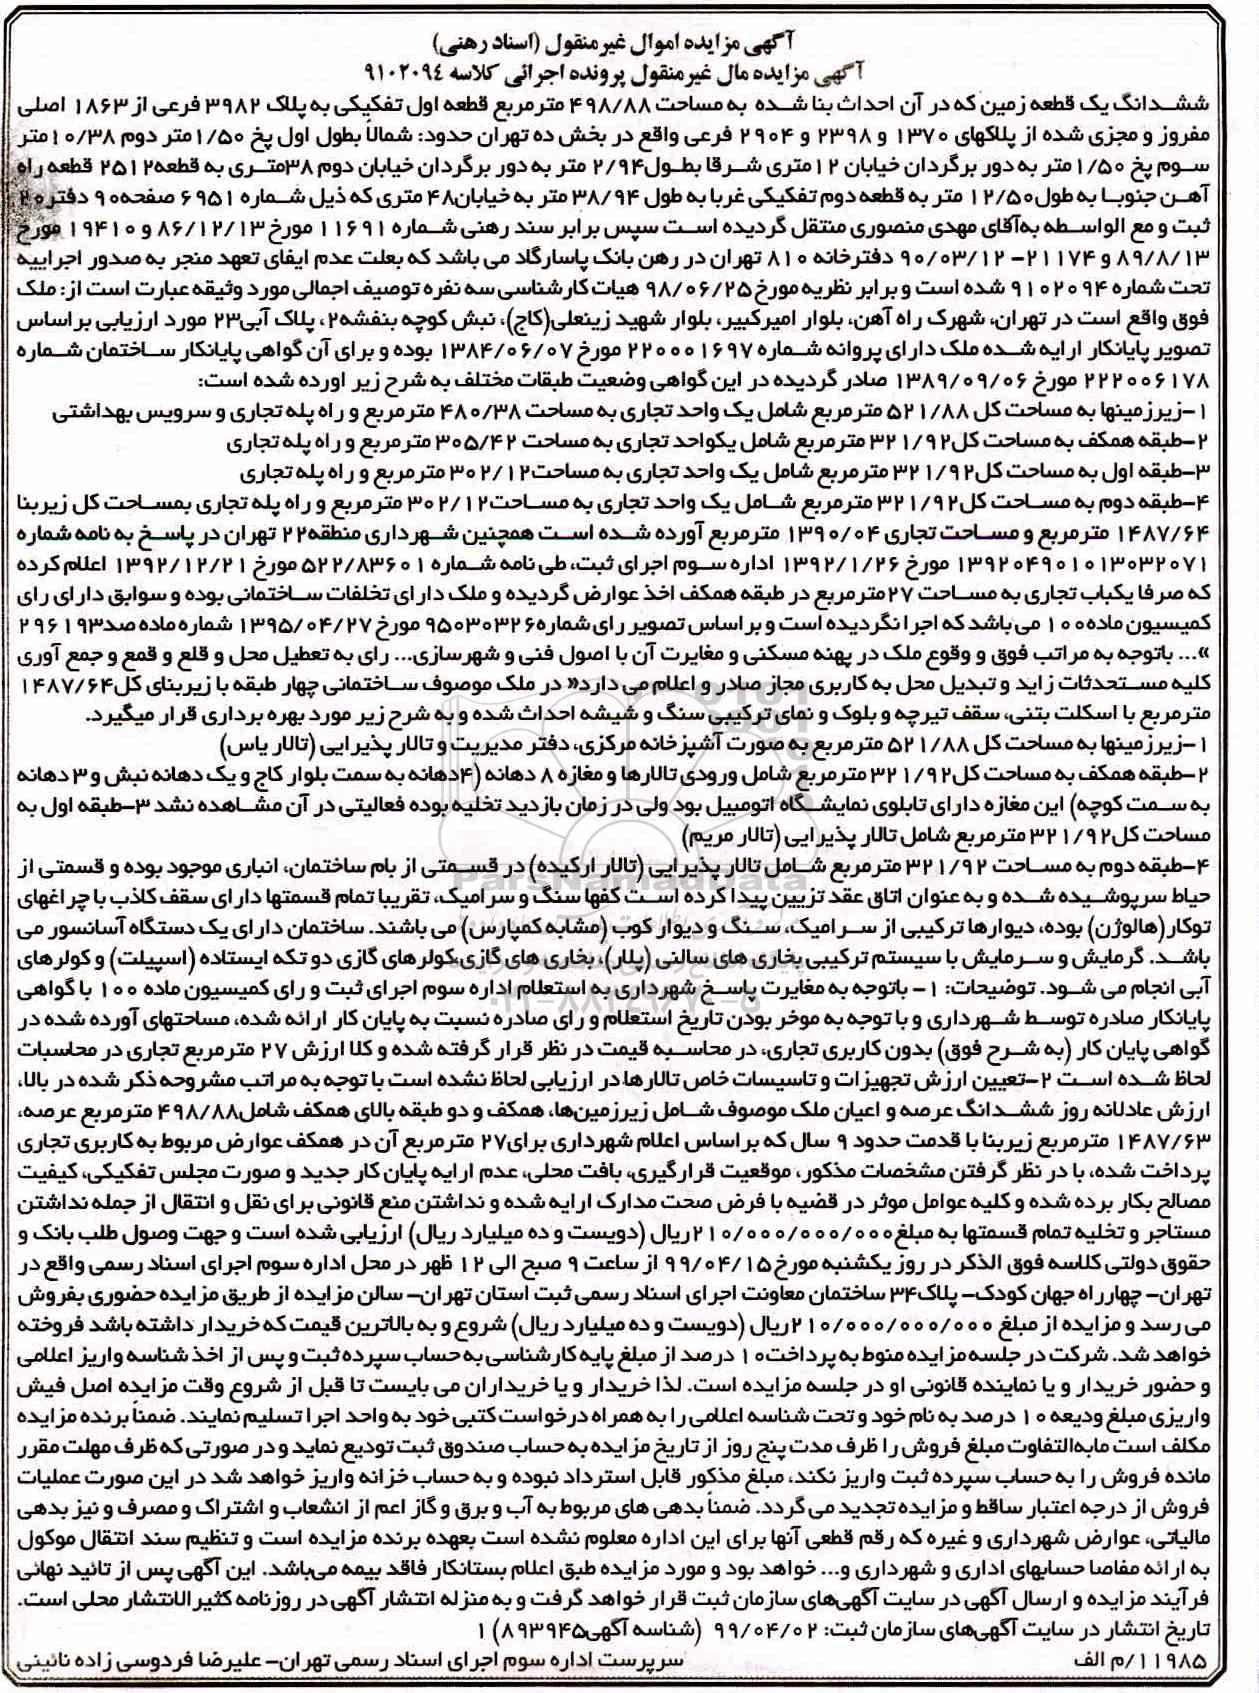 آگهی مزایده اموال غیرمنقول (اسناد رهنی)
آگهی مزایده مال غیرمنقول پرونده اجرائی کلاسه ۹۱۰۲۰۹۴
ششدانگ یک قطعه زمین که در آن احداث بنا شده به مساحت ۴۹۸/۸۸ مترمربع قطعه اول تفکیکی به پلاک ۳۹۸۲ فرعی از ۱۸۶۳ اصلی
مفروز و مجزی شده از پلاکهای ۱۳۷۰ و ۲۳۹۸ و ۲۹۰۴ فرعی واقع در بخش ده تهران حدود: شمالاً بطول اول پخ ۱/۵۰متر دوم ۱۰/۳۸متر
سوم پخ ۱/۵۰متر به دور برگردان خیابان ۱۲متری شرقا بطول۲/۹۴ متر به دور برگردان خیابان دوم ۳۸متری به قطعه۲۵۱۲ قطعه راه
آهن جنوبا به طول۱۲/۵۰ متر به قطعه دوم تفکیکی غربا به طول ۳۸/۹۴ متر به خیابان۴۸ متری که ذیل شماره ۶۹۵۱ صفحه۹۰ دفتر۲۰
ثبت و مع الواسطه به‌آقای مهدی منصوری منتقل گردیده است سپس برابر سند رهنی شماره ۱۱۶۹۱ مورخ ۸۶/۱۲/۱۳ و ۱۹۴۱۰ مورخ
۸۹/۸/۱۳ و ۲۱۱۷۴- ۹۰/۰۳/۱۲ دفترخانه ۸۱۰ تهران در رهن بانک پاسارگاد می باشد که بعلت عدم ایفای تعهد منجر به صدور اجراییه
تحت شماره ۹۱۰۲۰۹۴ شده است و برابر نظریه مورخ۹۸/۰۶/۲۵ هیات کارشناسی سه نفره توصیف اجمالی مورد وثیقه عبارت است از: ملک
فوق واقع است در تهران، شهرک راه آهن، بلوار امیرکبیر، بلوار شهید زینعلی(کاج)، نبش کوچه بنفشه۲، پلاک آبی۲۳ مورد ارزیابی براساس
تصویر پایانکار ارایه شده ملک دارای پروانه شماره ۲۲۰۰۰۱۶۹۷ مورخ ۱۳۸۴/۰۶/۰۷ بوده و برای آن گواهی پایانکار ساختمان شماره
۲۲۲۰۰۶۱۷۸ مورخ ۱۳۸۹/۰۹/۰۶ صادر گردیده در این گواهی وضعیت طبقات مختلف به شرح زیر اورده شده است:
۱-زیرزمینها به مساحت کل ۵۲۱/۸۸ مترمربع شامل یک واحد تجاری به مساحت ۴۸۰/۳۸ مترمربع و راه پله تجاری و سرویس بهداشتی
۲-طبقه همکف به مساحت کل۳۲۱/۹۲ مترمربع شامل یکواحد تجاری به مساحت ۳۰۵/۴۲ مترمربع و راه پله تجاری
۳-طبقه اول به مساحت کل۳۲۱/۹۲ مترمربع شامل یک واحد تجاری به مساحت۳۰۲/۱۲ مترمربع و راه پله تجاری
۴-طبقه دوم به مساحت کل۳۲۱/۹۲ مترمربع شامل یک واحد تجاری به مساحت۳۰۲/۱۲ مترمربع و راه پله تجاری بمساحت کل زیربنا
۱۴۸۷/۶۴ مترمربع و مساحت تجاری ۱۳۹۰/۰۴ مترمربع آورده شده است همچنین شهرداری منطقه۲۲ تهران در پاسخ به نامه شماره
۱۳۹۲۰۴۹۰۱۰۱۳۰۳۲۰۷۱ مورخ ۱۳۹۲/۱/۲۶ اداره سوم اجرای ثبت، طی نامه شماره ۵۲۲/۸۳۶۰۱ مورخ ۱۳۹۲/۱۲/۲۱ اعلام کرده
که صرفا یکباب تجاری به مساحت ۲۷مترمربع در طبقه همکف اخذ عوارض گردیده و ملک دارای تخلفات ساختمانی بوده و سوابق دارای رای
کمیسیون ماده۱۰۰ می باشد که اجرا نگردیده است و براساس تصویر رای شماره۹۵۰۳۰۳۲۶ مورخ ۱۳۹۵/۰۴/۲۷ شماره ماده صد۲۹۶۱۹۳
»... باتوجه به مراتب فوق و وقوع ملک در پهنه مسکنی و مغایرت آن با اصول فنی و شهرسازی... رای به تعطیل محل و قلع و قمع و جمع آوری
کلیه مستحدثات زاید و تبدیل محل به کاربری مجاز صادر و اعلام می دارد« در ملک موصوف ساختمانی چهار طبقه با زیربنای کل۱۴۸۷/۶۴
مترمربع با اسکلت بتنی، سقف تیرچه و بلوک و نمای ترکیبی سنگ و شیشه احداث شده و به شرح زیر مورد بهره برداری قرار میگیرد.
۱-زیرزمینها به مساحت کل ۵۲۱/۸۸ مترمربع به صورت آشپزخانه مرکزی، دفتر مدیریت و تالار پذیرایی (تالار یاس)
۲-طبقه همکف به مساحت کل۳۲۱/۹۲ مترمربع شامل ورودی تالارها و مغازه ۸ دهانه (۴دهانه به سمت بلوار کاج و یک دهانه نبش و ۳ دهانه
به سمت کوچه) این مغازه دارای تابلوی نمایشگاه اتومبیل بود ولی در زمان بازدید تخلیه بوده فعالیتی در آن مشاهده نشد ۳-طبقه اول به
مساحت کل۳۲۱/۹۲ مترمربع شامل تالار پذیرایی (تالار مریم)
۴-طبقه دوم به مساحت ۳۲۱/۹۲ مترمربع شامل تالار پذیرایی (تالار ارکیده) در قسمتی از بام ساختمان، انباری موجود بوده و قسمتی از
حیاط سرپوشیده شده و به عنوان اتاق عقد تزیین پیدا کرده است کفها سنگ و سرامیک، تقریبا تمام قسمتها دارای سقف کاذب با چراغهای
توکار(هالوژن) بوده، دیوارها ترکیبی از سرامیک، سنگ و دیوار کوب (مشابه کمپارس) می باشند. ساختمان دارای یک دستگاه آسانسور می
باشد. گرمایش و سرمایش با سیستم ترکیبی بخاری های سالنی (پلار)، بخاری های گازی،کولرهای گازی دو تکه ایستاده (اسپیلت) و کولرهای
آبی انجام می شود. توضیحات: ۱- باتوجه به مغایرت پاسخ شهرداری به استعلام اداره سوم اجرای ثبت و رای کمیسیون ماده ۱۰۰ با گواهی
پایانکار صادره توسط شهرداری و با توجه به موخر بودن تاریخ استعلام و رای صادره نسبت به پایان کار ارائه شده، مساحتهای آورده شده در
گواهی پایان کار (به شرح فوق) بدون کاربری تجاری، در محاسبه قیمت در نظر قرار گرفته شده و کلا ارزش ۲۷ مترمربع تجاری در محاسبات
لحاظ شده است ۲-تعیین ارزش تجهیزات و تاسیسات خاص تالارها در ارزیابی لحاظ نشده است با توجه به مراتب مشروحه ذکر شده در بالا،
ارزش عادلانه روز ششدانگ عرصه و اعیان ملک موصوف شامل زیرزمین‌ها، همکف و دو طبقه بالای همکف شامل۴۹۸/۸۸ مترمربع عرصه،
۱۴۸۷/۶۳ مترمربع زیربنا با قدمت حدود ۹ سال که براساس اعلام شهرداری برای۲۷ مترمربع آن در همکف عوارض مربوط به کاربری تجاری
پرداخت شده، با در نظر گرفتن مشخصات مذکور، موقعیت قرارگیری، بافت محلی، عدم ارایه پایان کار جدید و صورت مجلس تفکیکی، کیفیت
مصالح بکار برده شده و کلیه عوامل موثر در قضیه با فرض صحت مدارک ارایه شده و نداشتن منع قانونی برای نقل و انتقال از جمله نداشتن
مستاجر و تخلیه تمام قسمتها به مبلغ۲۱۰/۰۰۰/۰۰۰/۰۰۰ریال (دویست و ده میلیارد ریال) ارزیابی شده است و جهت وصول طلب بانک و
حقوق دولتی کلاسه فوق الذکر در روز یکشنبه مورخ۹۹/۰۴/۱۵ از ساعت ۹ صبح الی ۱۲ ظهر در محل اداره سوم اجرای اسناد رسمی واقع در
تهران- چهارراه جهان کودک- پلاک۳۴ ساختمان معاونت اجرای اسناد رسمی ثبت استان تهران- سالن مزایده از طریق مزایده حضوری بفروش
می رسد و مزایده از مبلغ ۲۱۰/۰۰۰/۰۰۰/۰۰۰ریال (دویست و ده میلیارد ریال) شروع و به بالاترین قیمت که خریدار داشته باشد فروخته
خواهد شد. شرکت در جلسه مزایده منوط به پرداخت۱۰ درصد از مبلغ پایه کارشناسی به حساب سپرده ثبت و پس از اخذ شناسه واریز اعلامی
و حضور خریدار و یا نماینده قانونی او در جلسه مزایده است. لذا خریدار و یا خریداران می بایست تا قبل از شروع وقت مزایده اصل فیش
واریزی مبلغ ودیعه ۱۰ درصد به نام خود و تحت شناسه اعلامی را به همراه درخواست کتبی خود به واحد اجرا تسلیم نمایند. ضمناً برنده مزایده
مکلف است مابه‌التفاوت مبلغ فروش را ظرف مدت پنج روز از تاریخ مزایده به حساب صندوق ثبت تودیع نماید و در صورتی که ظرف مهلت مقرر
مانده فروش را به حساب سپرده ثبت واریز نکند، مبلغ مذکور قابل استرداد نبوده و به حساب خزانه واریز خواهد شد در این صورت عملیات
فروش از درجه اعتبار ساقط و مزایده تجدید می گردد. ضمناً بدهی های مربوط به آب و برق و گاز اعم از انشعاب و اشتراک و مصرف و نیز بدهی
مالیاتی، عوارض شهرداری و غیره که رقم قطعی آنها برای این اداره معلوم نشده است بعهده برنده مزایده است و تنظیم سند انتقال موکول
به ارائه مفاصا حسابهای اداری و شهرداری و... خواهد بود و مورد مزایده طبق اعلام بستانکار فاقد بیمه می‌باشد. این آگهی پس از تائید نهائی
فرآیند مزایده و ارسال آگهی در سایت آگهی‌های سازمان ثبت قرار خواهد گرفت و به منزله انتشار آگهی در روزنامه کثیرالانتشار محلی است.
تاریخ انتشار در سایت آگهی‌های سازمان ثبت: ۹۹/۰۴/۰۲ (شناسه آگهی۸۹۳۹۴۵) ۱
۱۱۹۸۵/م الف سرپرست اداره سوم اجرای اسناد رسمی تهران- علیرضا فردوسی زاده نائینی
ParsNamadData
۰۲۱-۸۸۳۴۹۶۷۰-۵